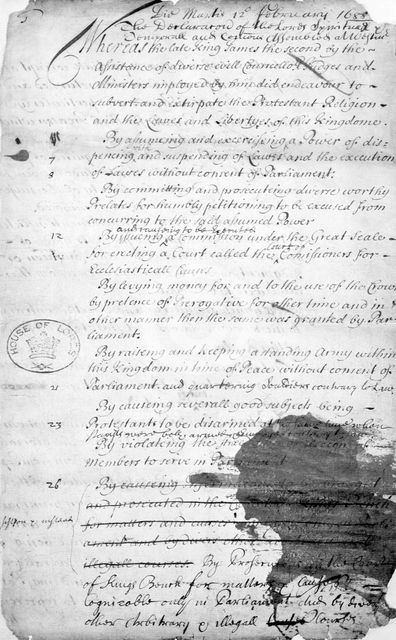 Die Martis 12 February 168
The Declaration of the Lords Spirituall
Temporall and Comons Assembled at Westmr
Whereas the late King James the second by the
Assistance of diverse evill Councellors Judges and
Ministers imployed by him did endeavour to
subvert and extirpate the Protestant Religion
and the Lawes and Libertyes of this Kingdome.
By assuming and exercising a Power of dis-
7 pencing with and suspending of Lawes and the execution
8 of Lawes without consent of Parliament.
By committing and prosecuting diverse worthy
Prelates for humbly petitioning to be excused from
concurring to the said assumed Power
and causeing to be executed
12 By issueing a Comission under the Great Seale
for erecting a Court called the Court of Comissioners for
Ecclesiasticall Causes
By levying money for and to the use of the Crowne
by pretence of Prerogative for other time and in
other manner then the same was granted by Par-
liament.
HOUSE OF LORDS
By raiseing and keeping a standing Army within
this Kingdom in time of Peace without consent of
21 Parliament and quartering Souldiers contrary to Law
By causeing severall good subjects being
23 Protestants to be disarmed at the same time when
Papists were both
By violateing the
members to serve in Parliament
26 By causeing
and prosecuted in the
for matters and causes
illegall courses By Prosecutions in the Court
of Kings Bench for matters & Causes
cognizable only in Parliament and by divers
other Arbitrary & illegall Courses